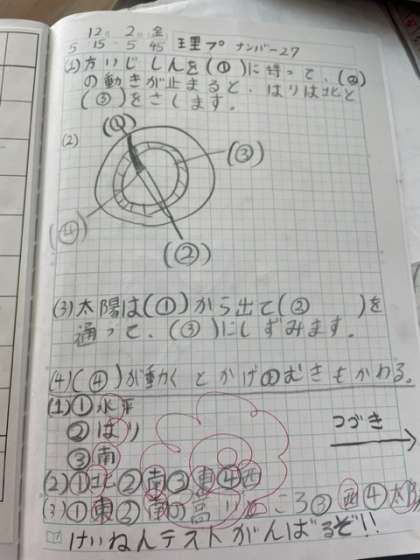 12月 2日 金
5 15 . 5 45 理プ ナンバー27
(1)方いじしんを(①)に持って、(②)
の動きが止まると、はりは北と
(③)をさします。
(2)
(①)
(③)
(④)
(②)
(3)太陽は(①)から出て(②)を
通って、(③)にしずみます。
(4)(④)が動くとかげのむきもかわる。
(1)①水平
②はり
③南
つづき
(2)①北②南③東④西
(3)①東②南の高いところ③西④太陽
けいねんテストがんばるぞ!!